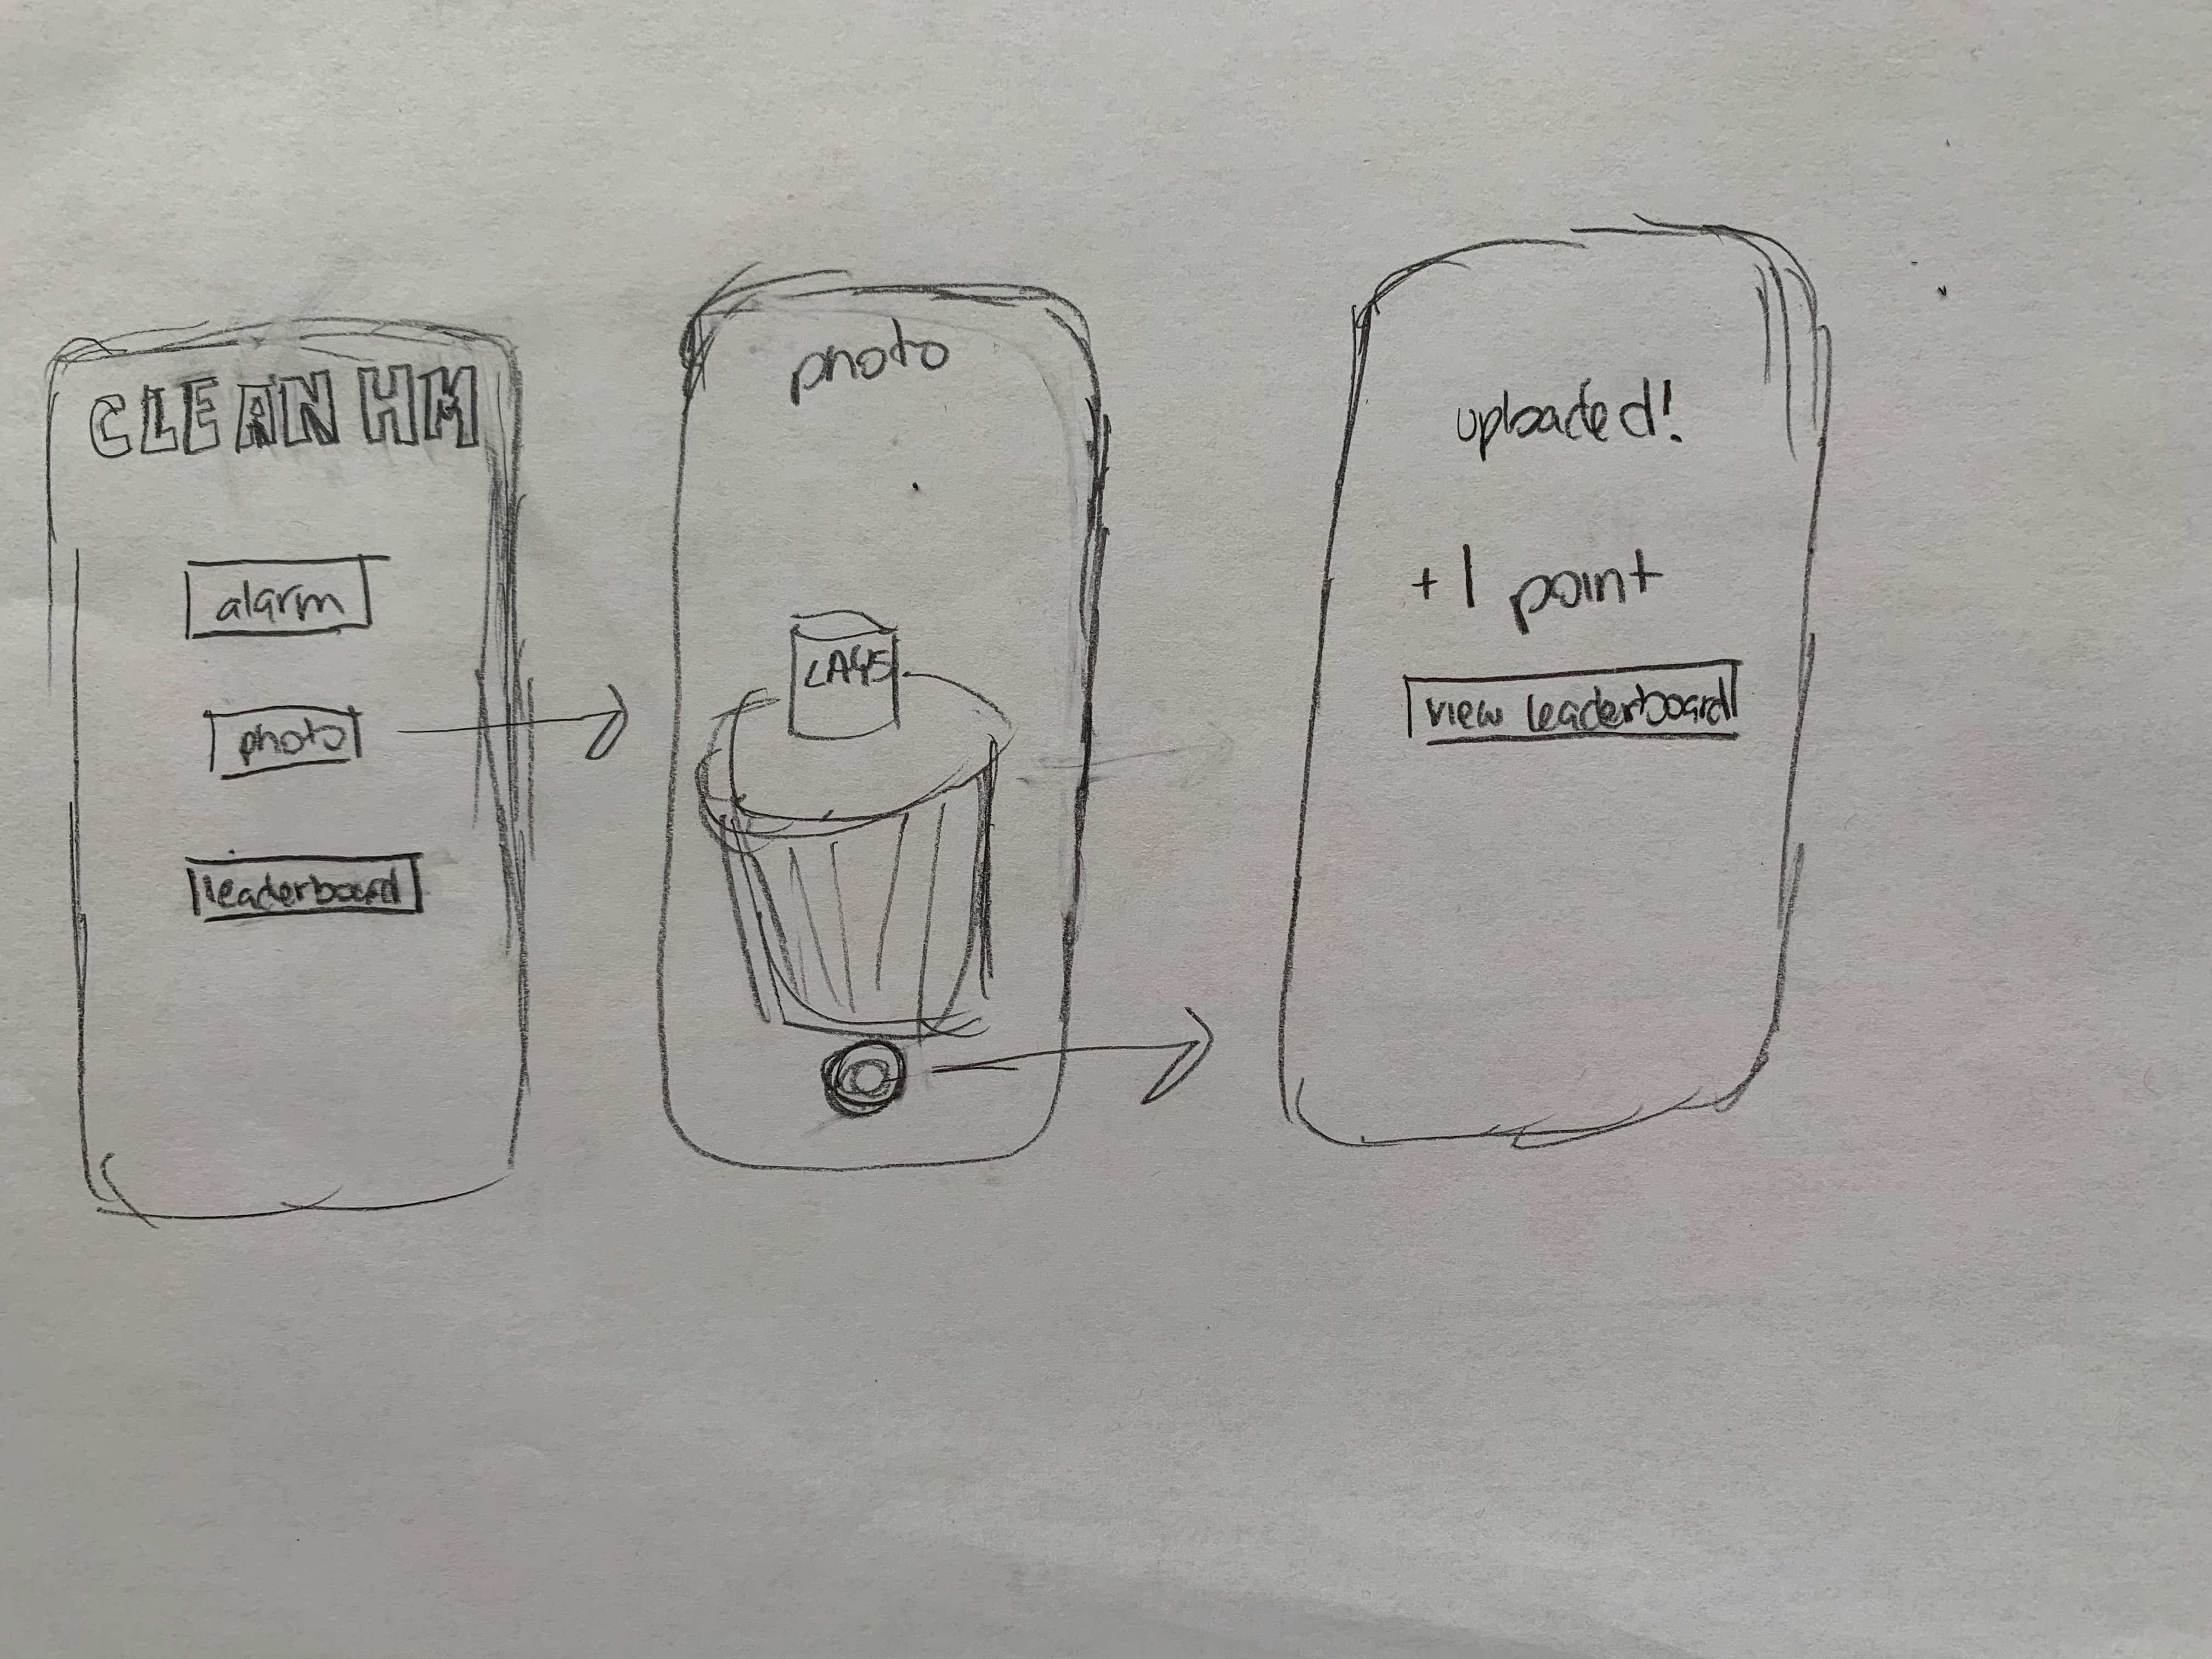 CLEAN HM
alarm
photo
leaderboard
photo
LAYS
uploaded!
+ 1 point
view leaderboard